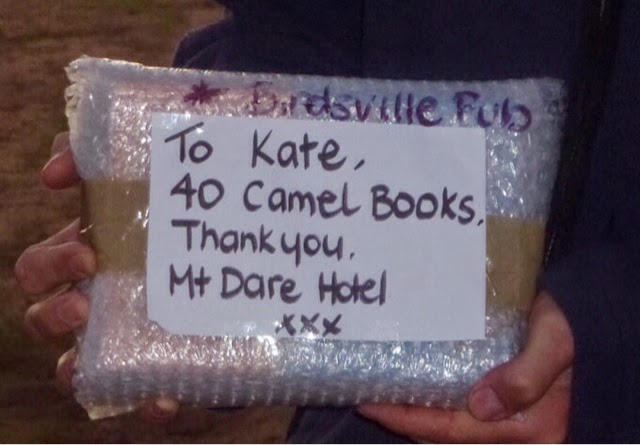 * Birdsville Pub
To Kate,
40 Camel Books,
Thank you.
Mt Dare Hotel
xxx